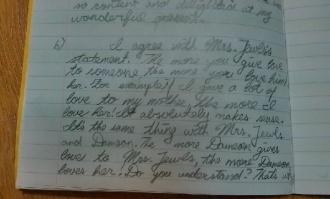 no content and delighted at my
wonderful present.
b) I agree with Mrs. Jewls's
statement. The more you give love
to someone the more you love him/
her. For example, I give a lot of
love to my mother, the more I
love her! It absolutely makes sense.
It's the same thing with Mrs. Jewls
and Dameon. The more Dameon gives
love to Mrs. Jewls, the more Dameon
loves her. Do you understand? That's